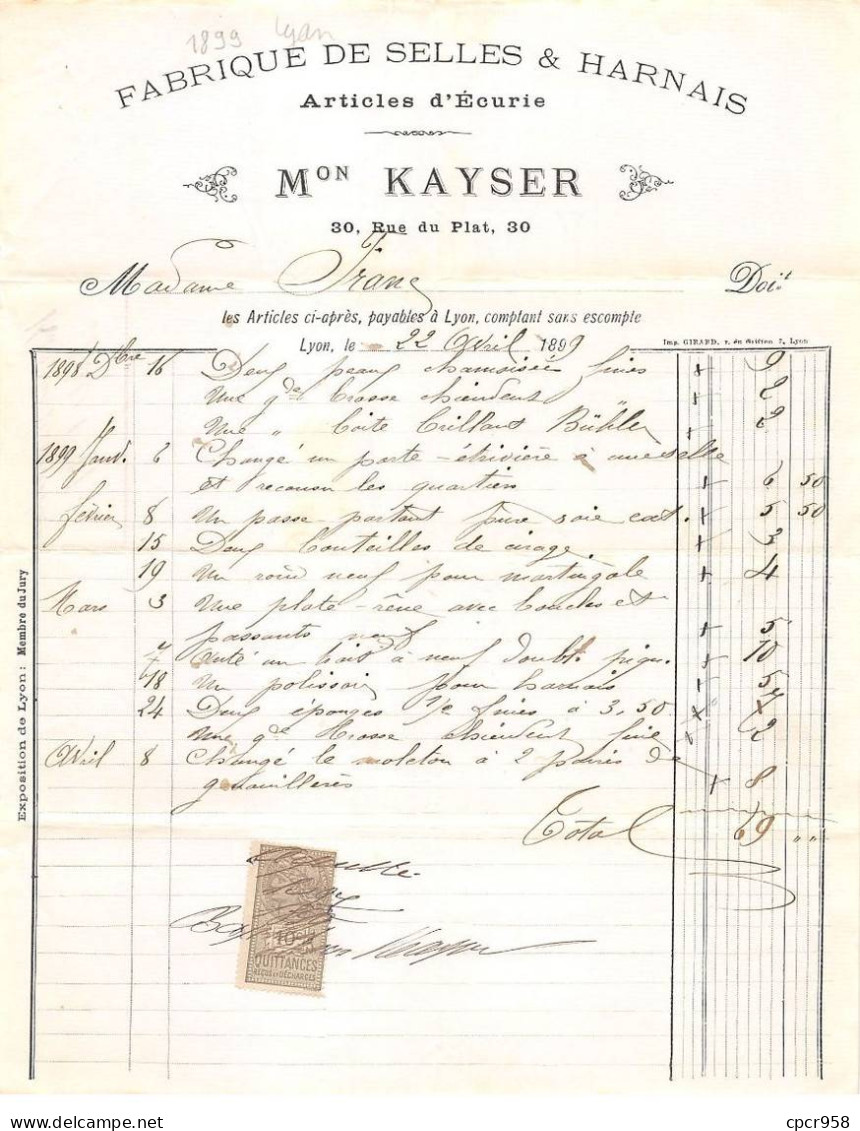 1899 Lyon
FABRIQUE DE SELLES & HARNAIS
Articles d'Écurie
Mon KAYSER
30, Rue du Plat, 30
Madame Franc Doit
les Articles ci-après, payables à Lyon, comptant sans escompte
Lyon, le 22 Avril 1899
Imp. GIRARD, r. du Griffon 7, Lyon
1898 Dbre 16 Deux peaux chamoisées fines + 9
Une gde brosse chiendent + 2
Une " boite brillant Bühler + 2
1899 Janv. 6 Changé un porte-étrivière à une selle
et recousu les quartiers + 6 50
février 8 Un passe-partout pure soie ext. + 5 50
15 Deux bouteilles de cirage. + 3
19 Un rond neuf pour martingale + 4
Mars 3 Une plate-rêne avec boucles et
passants neufs + 5
7 un trait à neuf doubl. piqu. + 10
18 Un polissoir pour harnais 5
24 Deux éponges fines à 3,50 7
Une gde brosse chiendent fine 2
Avril 8 Changé le molleton à 2 paires de
genouillères + 8
Total 69 " "
Exposition de Lyon: Membre du Jury
10 c
QUITTANCES
REÇUS ET DÉCHARGES
Kayser